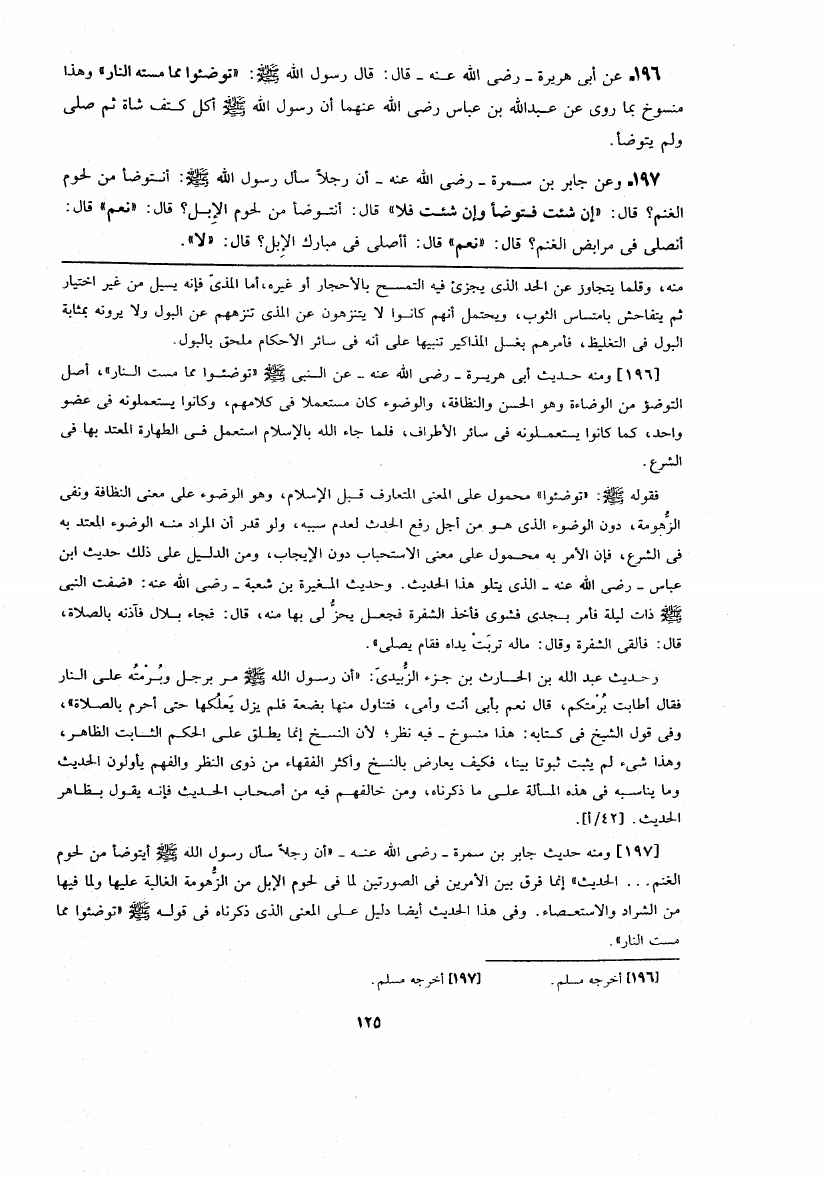 ١٩٦. عن أبى هريرة ـ رضى الله عنه ـ قال: قال رسول الله ﷺ: «توضئوا مما مسته النار» وهذا
منسوخ بما روى عن عبدالله بن عباس رضى الله عنهما أن رسول الله ﷺ أكل كتف شاة ثم صلى
ولم يتوضأ.
١٩٧. وعن جابر بن سمرة ـ رضى الله عنه ـ أن رجلاً سأل رسول الله ﷺ: أنتوضأ من لحوم
الغنم؟ قال: «إن شئت فتوضأ وإن شئت فلا» قال: أنتوضأ من لحوم الإبل؟ قال: «نعم» قال:
أنصلى فى مرابض الغنم؟ قال: «نعم» قال: أأصلى فى مبارك الإبل؟ قال: «لا».
منه، وقلما يتجاوز عن الحد الذى يجزئ فيه التمسح بالأحجار أو غيره، أما المذىّ فإنه يسيل من غير اختيار
ثم يتفاحش بامتساس الثوب، ويحتمل أنهم كانوا لا يتنزهون عن المذى تنزههم عن البول ولا يرونه بمثابة
البول فى التغليظ، فأمرهم بغسل المذاكير تنبيها على أنه فى سائر الأحكام ملحق بالبول.
[١٩٦] ومنه حديث أبى هريرة ـ رضى الله عنه ـ عن النبى ﷺ «توضئوا مما مست النار»، أصل
التوضؤ من الوضاءة وهو الحسن والنظافة، والوضوء كان مستعملا فى كلامهم، وكانوا يستعملونه فى عضو
واحد، كما كانوا يستعملونه فى سائر الأطراف، فلما جاء الله بالإسلام استعمل فى الطهارة المعتد بها فى
الشرع.
فقوله ﷺ: «توضئوا» محمول على المعنى المتعارف قبل الإسلام، وهو الوضوء على معنى النظافة ونفى
الزُّهومة، دون الوضوء الذى هو من أجل رفع الحدث لعدم سببه، ولو قدر أن المراد منه الوضوء المعتد به
فى الشرع، فإن الأمر به محمول على معنى الاستحباب دون الإيجاب، ومن الدليل على ذلك حديث ابن
عباس ـ رضى الله عنه ـ الذى يتلو هذا الحديث. وحديث المغيرة بن شعبة ـ رضى الله عنه: «ضفت النبى
ﷺ ذات ليلة فأمر بجدى فشوى فأخذ الشفرة فجعل يحزُّ لى بها منه، قال: فجاء بلال فآذنه بالصلاة،
قال: فألقى الشفرة وقال: ماله تربَتْ يداه فقام يصلى».
وحديث عبد الله بن الحارث بن جزء الزُّبيدىّ: «أن رسول الله ﷺ مر برجل وبُرْمتُه على النار
فقال أطابت بُرْمتكم، قال نعم بأبى أنت وأمى، فتناول منها بضعة فلم يزل يَعلُكها حتى أحرم بالصلاة»،
وفى قول الشيخ فى كتابه: هذا منسوخ ـ فيه نظر؛ لأن النسخ إنما يطلق على الحكم الثابت الظاهر،
وهذا شىء لم يثبت ثبوتا بينا، فكيف يعارض بالنسخ وأكثر الفقهاء من ذوى النظر والفهم يأولون الحديث
وما يناسبه فى هذه المسألة على ما ذكرناه، ومن خالفهم فيه من أصحاب الحديث فإنه يقول بظاهر
الحديث. [٤٢/أ].
[١٩٧] ومنه حديث جابر بن سمرة ـ رضى الله عنه ـ «أن رجلاً سأل رسول الله ﷺ أيتوضأ من لحوم
الغنم... الحديث» إنما فرق بين الأمرين فى الصورتين لما فى لحوم الإبل من الزُّهومة الغالبة عليها ولما فيها
من الشراد والاستعصاء. وفى هذا الحديث أيضا دليل على المعنى الذى ذكرناه فى قوله ﷺ «توضئوا مما
مست النار».
[١٩٦] أخرجه مسلم. [١٩٧] أخرجه مسلم.
١٢٥